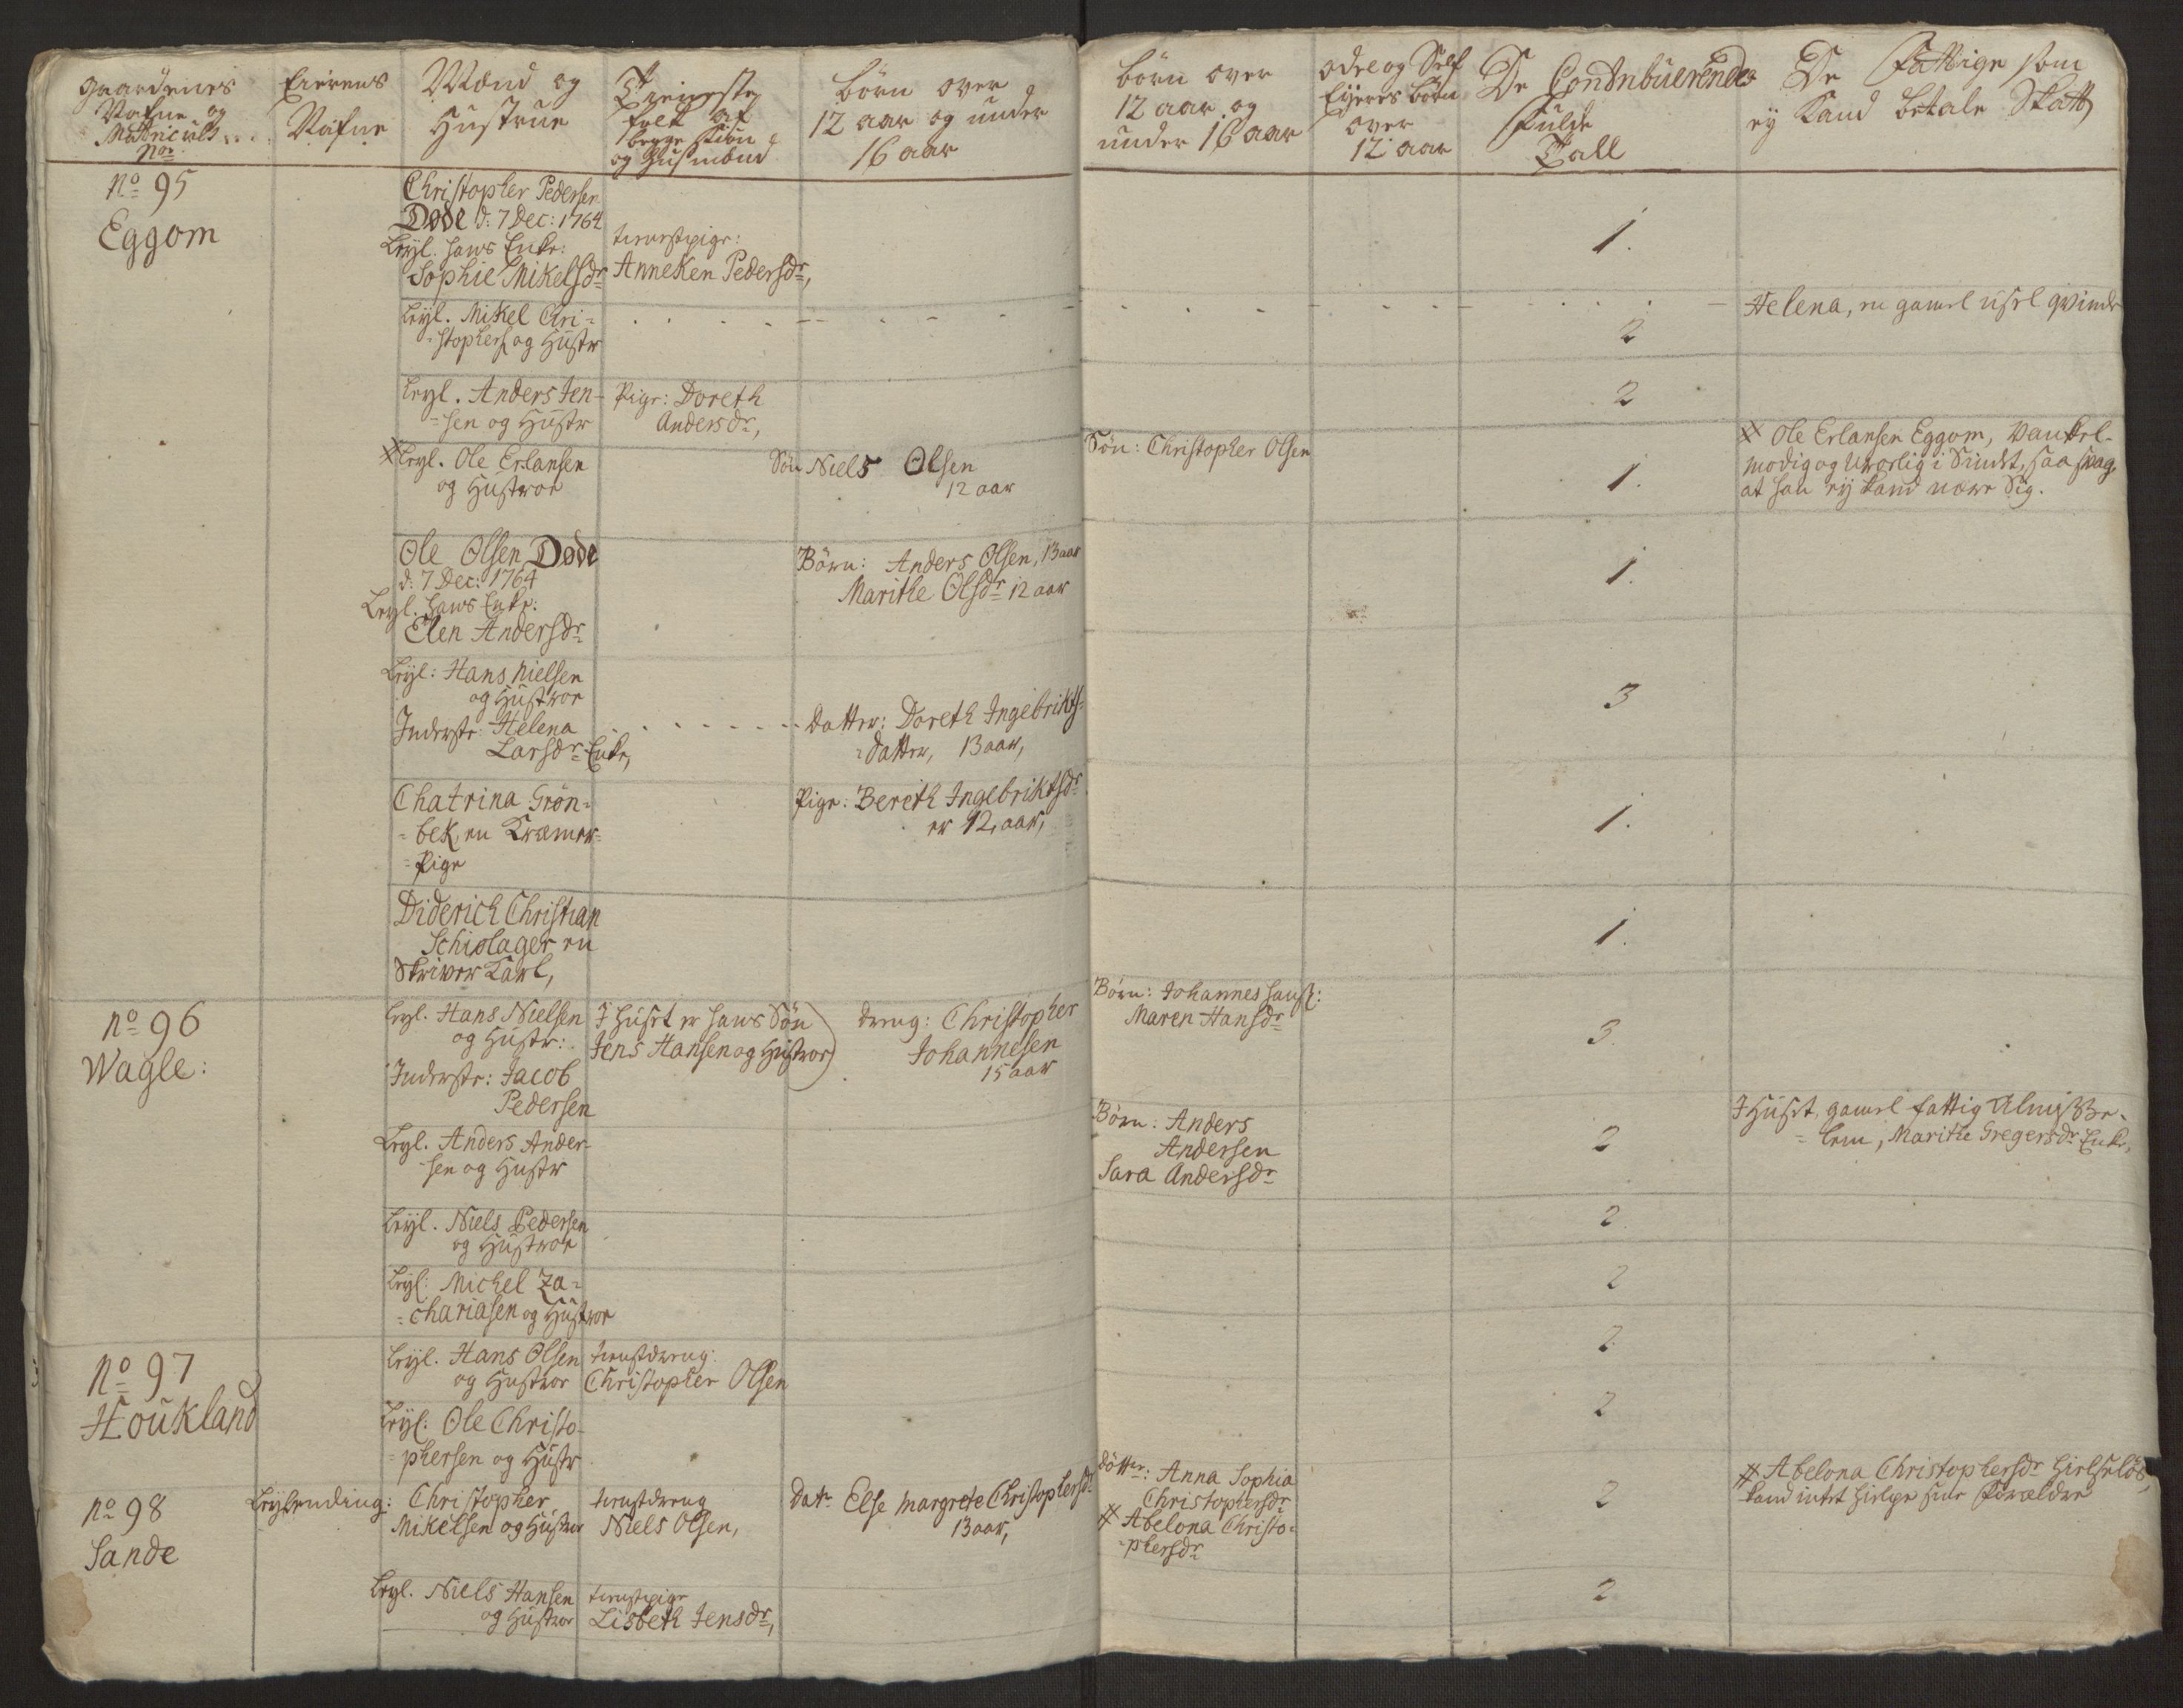 Gaardenes
Nafne og
Matriculs
Nor.
Eierens
Nafne
Mænd og
Hustrue
Tieneste
folk af
begge Kiøn
og Husmænd
børn over
12 aar og under
16 aar
børn over
12 aar og
under 16 aar
odel og Self
Eyeres børn
over
12 aar
De Contribuerendes
Fulde
Tall
De Fattige som
ej Kand betale Skatt
No 95
Eggom
Christopher Pedersen
Døde d: 7 Dec: 1764
Leyl. hans Enke:
Sophie Mikelsdr
tienestpige:
Anneken Pedersdr,
1.
Leyl. Mikel Chri-
-stophers og Hustr
2
Helena, en gamel usel qvinde
Leyl. Anders Jen-
-sen og Hustr
Pige: Doreth
Andersdr,
2
# Leyl. Ole Erlansen
og Hustroe
Søn Niels Olsen
12 aar
Søn: Christopher Olsen
1.
# Ole Erlansen Eggom, Vankel-
modig og Urolig i Sindet, saa svag,
at han ej kand nære Sig.
Ole Olsen Døde
d: 7 Dec: 1764
Leyl. hans Enke:
Elen Andersdr
Børn: Anders Olsen, 13 aar
Marithe Olsdr 12 aar
1.
Leyl: Hans Nielsen
og Hustroe
Inderste: Helena
Larsdr Enke,
Datter: Doreth Ingebrikts-
-datter, 13 aar,
3
Chatrina Grøn-
-bek, en Kræmer-
-Pige
Pige: Bereth Ingebriktsdr
er 12 aar,
1.
Diderich Christian
Schiolager en
Skriver Karl,
1.
No 96
Wagle:
Leyl. Hans Nielsen
og Hustr:
Inderste: Jacob
Pedersen
I Huset er hans Søn
Jens Hansen og Hustroe
dreng: Christopher
Johannesen
15 aar
Børn: Johannes Hans:
Maren Hansdr
3.
Leyl. Anders Ander-
-sen og Hustr
Børn: Anders
Andersen
Sara Andersdr
2
I Huset, gamel fattig Almisse-
-lem, Marithe Gregersdr Enke,
Leyl. Niels Pedersen
og Hustroe
2.
Leyl: Michel Za-
-chariasen og Hustroe
2
No 97
Houkland
Leyl. Hans Olsen
og Hustroe
tienestdreng:
Christopher Olsen
2
Leyl: Ole Christo-
-phersen og Hustr
2
No 98
Sande
Leylending:
Christopher
Mikelsen og Hustroe
tienestdreng
Niels Olsen,
Datr Else Margrete Christophersdr
13 aar,
Døttr: Anna Sophia
Christophersdr
# Abelona Christo-
-phersdr
2
# Abelona Christophersdr hielpeløs,
kand intet hielpe sine Forældre
Leyl. Niels Hansen
og Hustroe
tienestpige
Lisbeth Jensdr,
2